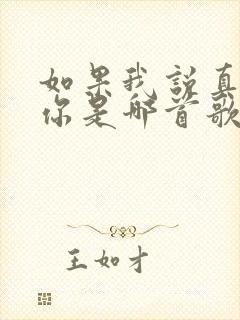 如果我说真
你是哪首歌
王如才